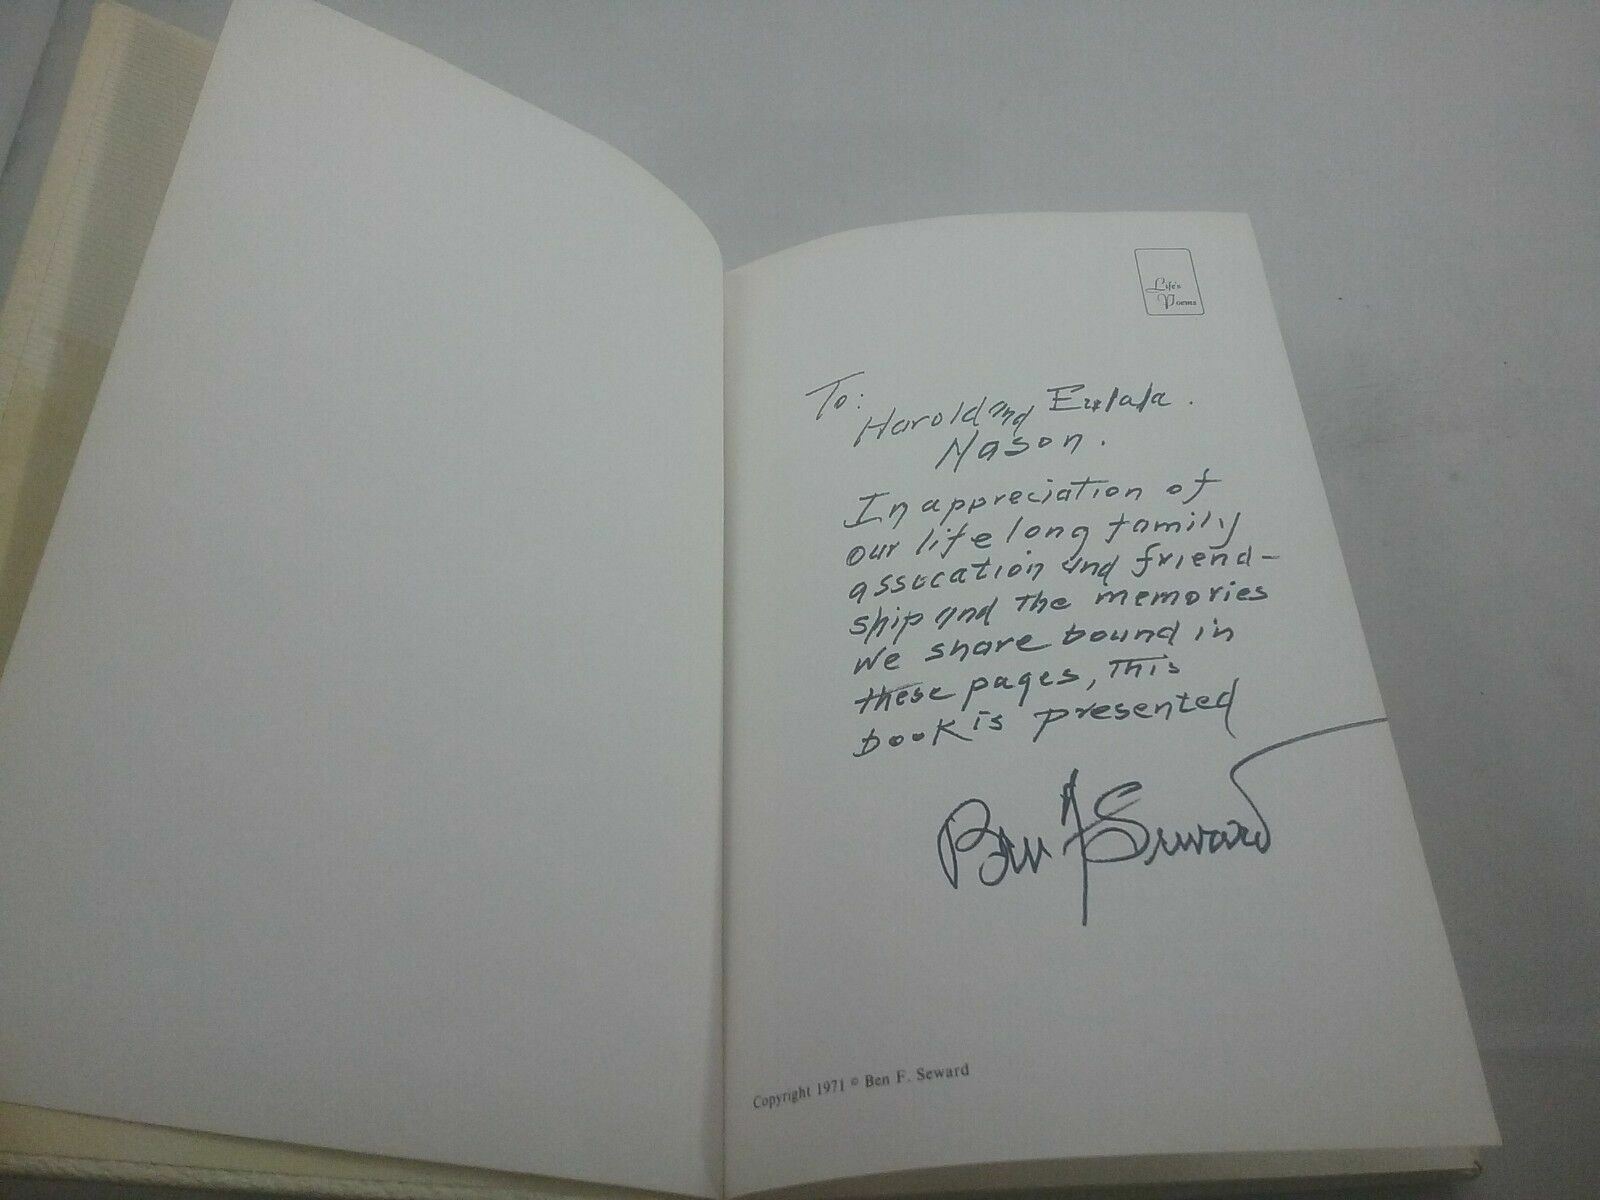 Life's
Poems
To:
Harold and Eulala.
Nason.
In appreciation of
our life long family
assocation and friend-
ship and the memories
we share bound in
these pages, This
book is presented
Ben F Seward
Copyright 1971 © Ben F. Seward